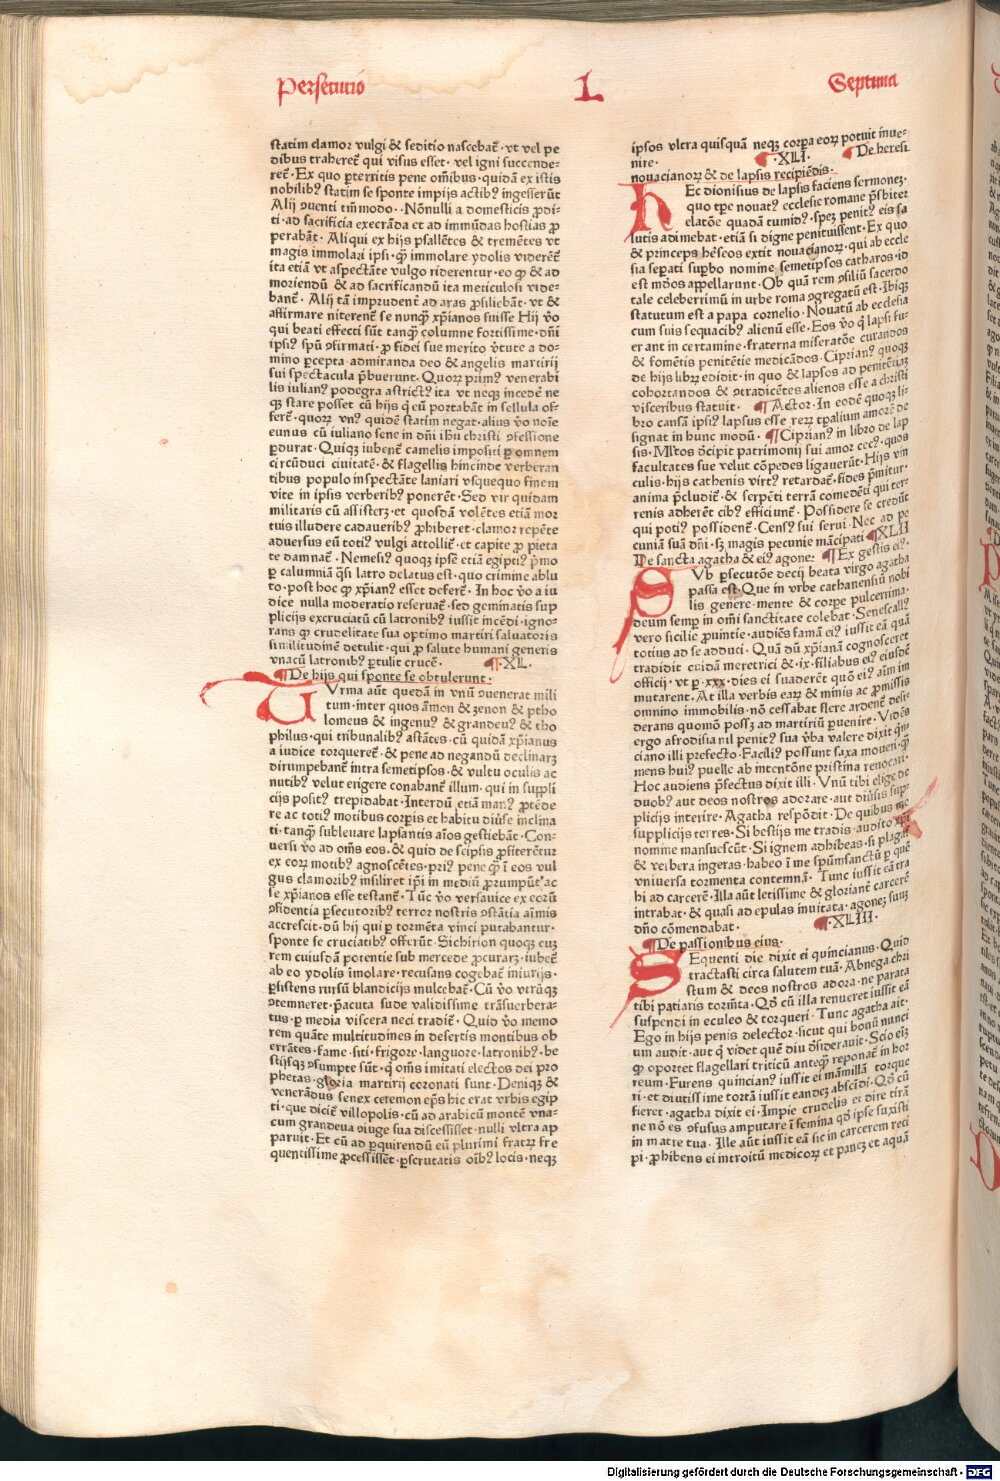 Persecucio L Septima
statim clamor vulgi & seditio nascebat̄ · vt vel pe
dibus traheret̄ qui visus esset · vel igni succende-
ret̄ · Ex quo ꝑterritis pene om̄ibus · quidā ex istis
nobilibꝰ statim se sponte impijs actibꝰ ingesserūt
Alij ꝯuenti tm̄modo · Nōnulli a domesticis ꝓdi-
ti · ad sacrificia execrāda et ad immūdas hostias ꝓ
perabāt · Aliqui ex hijs psallētes & tremētes vt
magis immolari ipsi · qͣ immolare ydolis viderēt̄
ita etiā vt aspectāte vulgo riderentur · eo ꝙ & ad
moriendū & ad sacrificandū ita meticulosi vide-
bant̄ · Alij tā imprudent̄ ad aras ꝓsiliebāt · vt &
affirmare niterent̄ se nunqͣ xp̄ianos fuisse Hij v̄o
qui beati effecti sūt tanqͣ columne fortissime · dn̄i
ipsiꝰ spū ꝯfirmati · ꝓ fidei sue merito v̄tute a do-
mino ꝑcepta · admiranda deo & angelis martirij
sui spectacula p̄buerunt · Quoꝝ primꝰ venerabi
lis iulianꝰ podegra astrictꝰ ita vt neqꝫ incedē ne
qꝫ stare posset cū hijs qͥ eū portabāt in sellula of-
fert̄ · quoꝝ vnꝰ quidē statim negat · alius v̄o noīe
eunus cū iuliano sene in dn̄i ihu christi ꝯfessione
ꝑdurat · Quiqꝫ iubent̄ camelis impositi ꝑ omnem
circūduci ciuitatē · & flagellis hincinde verberan
tibus populo inspectāte laniari vsquequo finem
vite in ipsis verberibꝰ ponerēt · Sed vir quidam
militaris cū assisteꝫ · et quosdā volētes etiā mor
tuis illudere cadaueribꝰ ꝓhiberet · clamor repēte
aduersus eū totiꝰ vulgi attollit̄ · et capite ꝓ pieta
te damnat̄ · Nemesiꝰ quoqꝫ ipse etiā egiptiꝰ p̄mo
ꝑ calumniā qͣsi latro delatus est · quo crimine ablu
to · post hoc ꝙ xp̄ianꝰ esset defert̄ · In hoc v̄o a iu
dice nulla moderatio reseruat̄ · sed geminatis sup
plicijs excruciatū cū latronibꝰ iussit incēdi · igno-
rans ꝙ crudelitate sua optimo martiri saluatoris
similitudinē detulit · qui ꝓ salute humani generis
vnacū latronibꝰ ꝑtulit crucē · ¶ · XL ·
¶ De hijs qui sponte se obtulerunt ·
Urma aūt quedā in vnū ꝯuenerat mili
tum · inter quos āmon & zenon & ptho
lomeus & ingenuꝰ & grandeuꝰ & tho
philus · qui tribunalibꝰ astātes · cū quidā xp̄ianus
a iudice torqueret̄ · & pene ad negandū declinaꝫ
dirumpebant̄ intra semetipsos · & vultu oculis ac
nutibꝰ velut erigere conabant̄ illum · qui in suppli
cijs positꝰ trepidabat · Interdū etiā manꝰ ꝓtēde
re ac totiꝰ motibus corꝑis et habitu diūse inclina
ti · tanqͣ subleuare lapsantis aīos gestiebāt · Con-
uersi v̄o ad om̄s eos · & quid de seipsis ꝓfiterētur
ex eoꝝ motibꝰ agnoscētes · priꝰ pene qͣ ī eos vul
gus clamoribꝰ insiliret ip̄i in mediū ꝓrumpūt · ac
se xp̄ianos esse testant̄ · Tūc v̄o versauice ex eorū
ꝯfidentia ꝑsecutoribꝰ terror nostris ꝯstātia aīmis
accrescit · dū hij qui ꝑ tormēta vinci putabantur ·
sponte se cruciatibꝰ offerūt · Sichirion quoqꝫ cuꝫ
rem cuiusdā potentie sub mercede ꝓcuraꝫ · iubet̄
ab eo ydolis imolare · recusans cogebat̄ iniurijs ·
ꝑsistens rursū blandicijs mulcebat̄ · Cū v̄o vtrūqꝫ
ꝯtemneret · p̄acuta sude validissime trāsuerbera-
tus · ꝑ media viscera neci tradit̄ · Quid v̄o memo
rem quāte multitudines in desertis montibus ob
errātes · fame · siti · frigore · languore · latronibꝰ · be
stijsqꝫ ꝯsumpte sūt · qͥ om̄s imitati electos dei pro
phetas · gloria martirij coronati sunt · Deniqꝫ &
venerādus senex ceremon ep̄s hic erat vrbis egip
ti · que dicit̄ villopolis · cū ad arabicū montē vna-
cum grandeua ꝯiuge sua discessisset · nulli vltra ap
paruit · Et cū ad ꝑquirendū eū plurimi fratꝝ fre
quentissime ꝓcessissēt · ꝑscrutatis oībꝰ locis · neqꝫ
ipsos vltra quisquā neqꝫ corꝑa eoꝝ potuit inue-
nire · ¶ · XLI · ¶ De heresi
nouacianoꝝ & de lapsis recipiēdis ·
Et dionisius de lapsis faciens sermoneꝫ ·
quo tꝑe nouatꝰ ecclesie romane p̄sbiter
elatōe quadā tumidꝰ · speꝫ penitꝰ eis sa
lutis adimebat · etiā si digne penituissent · Ex quo
& princeps hēseos extit nouacianoꝝ · qui ab eccle
sia seꝑati suꝑbo nomine semetipsos catharos · id
est mūdos appellarunt · Ob quā rem ꝯsiliū sacerdo
tale celeberrimū in vrbe roma ꝯgregatū est · Ibiqꝫ
statutum est a papa cornelio · Nouatū ab ecclesia
cum suis sequacibꝰ alienū esse · Eos v̄o qͥ lapsi fu-
erant in certamine · fraterna miseratōe curandos
& fomētis penitētie medicādos · Ciprianꝰ quoqꝫ
de hijs libꝝ edidit · in quo & lapsos ad penitētiaꝫ
cohortandos & ꝯtradicētes alienos esse a christi
visceribus statuit · ¶ Actor · In eodē quoqꝫ li-
bro cansā ipsiꝰ lapsus esse reꝝ tꝑalium amorē de
signat in hunc modū · ¶ Ciprianꝰ in libro de lap
sis · Ml̄tos decipit patrimonij sui amor cecꝰ · quos
facultates sue velut cōpedes ligauerūt · Hijs vin
culis · hijs cathenis virtꝰ retardat̄ · fides p̄mitur ·
anima p̄cludit̄ · & serpēti terrā comedēti qui ter-
renis adherēt cibꝰ efficiunt̄ · Possidere se credūt
qui potiꝰ possident̄ · Censꝰ sui serui · Nec ad pe
cuniā suā dn̄i · sꝫ magis pecunie mācipati ¶ XLII
De sancta agatha & eiꝰ agone · ¶ Ex gestis eiꝰ ·
Vb ꝑsecutōe decij beata virgo agatha
passa est · Que in vrbe cathanensiū nobi
lis genere · mente & corꝑe pulcerrima ·
deum semꝑ in om̄i sanctitate colebat · Senescallꝰ
vero sicilie ꝓuintie · audiēs famā eiꝰ iussit eā quā
totius ad se adduci · Quā dū xp̄ianā cognosceret
tradidit cuidā meretrici & · ix · filiabus eiꝰ eiusdē
officij · vt ꝑ · xxx · dies ei suaderēt quō eiꝰ aīm im
mutarent · At illa verbis eaꝝ & minis ac ꝓmissis
omnino immobilis · nō cessabat flere ardent̄ desi-
derans quomō possꝫ ad martiriū ꝑuenire · Vidēs
ergo afrodisia nil penitꝰ sua v̄ba valere dixit qn̄
ciano illi prefecto · Faciliꝰ possunt saxa moueri · qͣ
mens huiꝰ puelle ab intentōne pristina reuocari ·
Hoc audiens p̄fectus dixit illi · Vnū tibi elige de
duobꝰ aut deos nostros adorare · aut diūsis sup-
plicijs interire · Agatha respōdit · De quibus me
supplicijs terres · Si bestijs me tradis · audito xp̄i
nomine mansuescūt · Si ignem adhibeas · si plagas
& verbera ingeras · habeo ī me spūmsanctū ꝑ quē
vniuersa tormenta contemnā · Tunc iussit eā tra
hi ad carcerē · Illa aūt letissime & gloriant̄ carcerē
intrabat · & quasi ad epulas inuitata · agoneꝫ suuꝫ
dn̄o cōmendabat · ¶ · XLIII ·
¶ De passionibus eius ·
Equenti die dixit ei quincianus · Quid
tractasti circa salutem tuā · Abnega chri
stum & deos nostros adora · ne parata
tibi patiaris torm̄ta · Qd̄ cū illa renueret iussit eā
suspendi in eculeo & torqueri · Tunc agatha ait ·
Ego in hijs penis delector · sicut qui bonū nunci
um audit · aut qͥ videt quē diu ꝯsiderauit · Scio eiꝫ
ꝙ oportet flagellari triticū anteqͣ reponat̄ in hor
reum · Furens quincianꝰ iussit ei māmillā torque
ri · et diutissime tortā iussit eandeꝫ abscīdi · Qd̄ cū
fieret · agatha dixit ei · Impie crudelis et dire tirā
ne nō es ꝯfusus amputare ī femina qd̄ ipse suxisti
in matre tua · Ille aūt iussit eā sic in carcerem reci
pi · ꝓhibens ei introitū medicoꝝ et paneꝫ et aquā
Digitalisierung gefördert durch die Deutsche Forschungsgemeinschaft - DFG